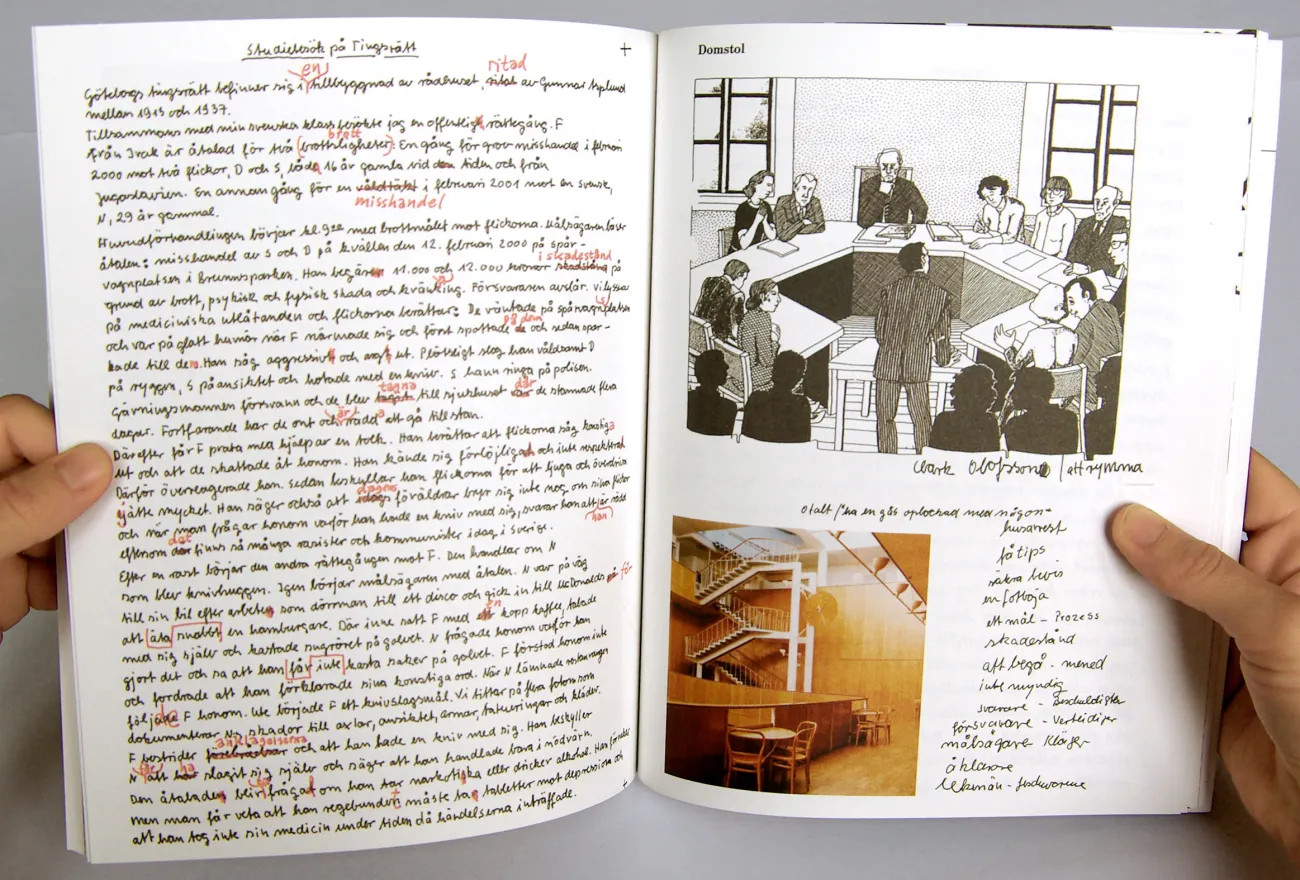 Studiebesök på Tingsrätt
en ritad
Göteborgs tingsrätt befinner sig i tillbyggnad av rådhuset, av Gunnar Asplund
mellan 1913 och 1937.
Tillsammans med min svenska klass besökte jag en offentlig rättegång. F
brott
från Irak är åtalad för två (brottsligheter): En gång för grov misshandel i februari
2000 mot två flickor, D och S, båda 16 år gamla vid den tiden och från
Jugoslavien. En annan gång för en våldtäkt i februari 2001 mot en svensk,
misshandel
N, 29 år gammal.
Huvudförhandlingen börjar kl. 9 med brottmålet mot flickorna. Målsägaren läser
åtalen: misshandel av S och D på kvällen den 12. februari 2000 på spår-
i skadestånd
vagnplatsen i Brunnsparken. Han begären 11.000 och 12.000 kronor på
grund av brott, psykisk och fysisk skada och kränking. Försvararen avslår. Vi lyssnar
på medicinska utlåtanden och flickorna berättar: De väntade på spårvagnplatsen
på dem
och var på glatt humör när F närmade sig och först spottade de och sedan spar-
kade till den. Han såg aggressivt och argt ut. Plötsligt slog han våldsamt D
på ryggen, S på ansiktet och hotade med en kniv. S hann ringa på polisen.
tagna där
Gärningsmannen försvann och de blev till sjukhuset var de stannade flera
är
dagar. Fortfarande har de ont och rädda att gå till stan.
Därefter får F prata med hjälp av en tolk. Han berättar att flickorna såg konstiga
ut och att de skattade åt honom. Han kände sig förlöjligad och inte respekterad
Därför överreagerade han. Sedan beskyllar han flickorna för att ljuga och överdriva
dagens
jätte mycket. Han säger också att idags föräldrar bryr sig inte nog om sina flickor
och när man frågar honom varför han hade en kniv med sig, svarar han att är rädd
det han
eftersom där finns så många rasister och kommunister idag i Sverige.
Efter en rast börjar den andra rättegången mot F. Den handlar om N
som blev knivhuggen. Igen börjar målsägaren med åtalen. N var på väg
till sin bil efter arbeten som dörrman till ett disco och gick in till McDonalds på för
en
att äta snabbt en hamburgare. Där inne satt F med ett kopp kaffe, talade
med sig själv och kastade sugröret på golvet. N frågade honom varför han
gjort det och sa att han får inte kasta saker på golvet. F förstod honom inte
och fordrade att han förklarade sina konstiga ord. När N lämnade restaurangen
följde F honom. Ute började F ett knivslagsmål. Vi tittar på flera foton som
dokumenterar Ns skador till axlar, ansiktet, armar, tatueringar och kläder.
anklagelserna
F bestrider och att han hade en kniv med sig. Han beskyller
får ha
N att har slagit sig själv och säger att han handlade bara i nödvärn.
Den åtalade blir frågat om han tar narkotiska eller dricker alkohol. Han förnekar
men man får veta att han regebunden måste tag tabletter mot depression och
att han tog inte sin medicin under tiden då händelserna inträffade.
Domstol
Clark Olofsson / att rymma
otalt / ha en gås oplockad med någon
husarrest
få tips
säkra bevis
en fotboja
ett mål - Prozess
skadestånd
att begå - mened
inte myndig
svarare - Beschuldigter
försvarare - Verteidiger
målsägare Kläger
åklagare